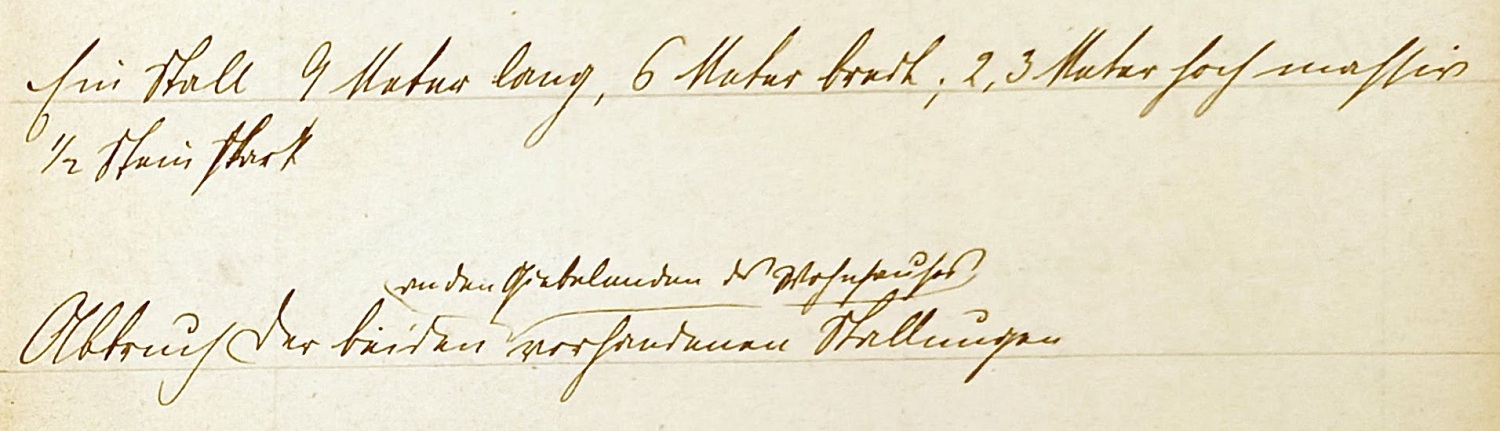 Ein Stall 9 Meter lang, 6 Meter breit, 2,3 Meter hoch massiv
1/2 Stein stark
an den Giebelenden des Wohnhauses
Abbruch der beiden vorhandenen Stallungen